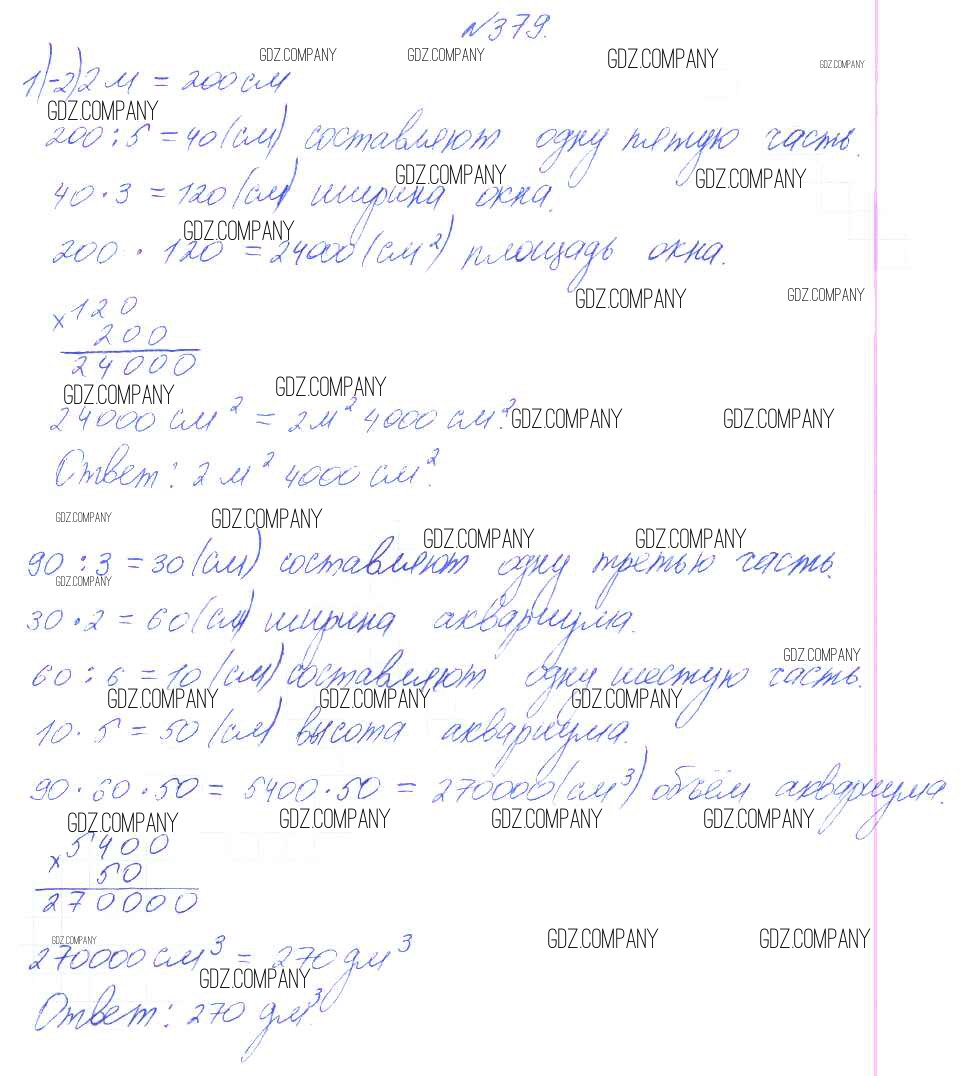 №379.
GDZ.COMPANY GDZ.COMPANY GDZ.COMPANY GDZ.COMPANY
1)-2) 2 м = 200 см
GDZ.COMPANY
200 : 5 = 40 (см) составляют одну пятую часть.
GDZ.COMPANY GDZ.COMPANY
40 · 3 = 120 (см) ширина окна.
GDZ.COMPANY
200 · 120 = 24000 (см²) площадь окна.
GDZ.COMPANY GDZ.COMPANY
× 120
200
24000
GDZ.COMPANY GDZ.COMPANY
24000 см² = 2 м² 4000 см².
GDZ.COMPANY GDZ.COMPANY
Ответ: 2 м² 4000 см².
GDZ.COMPANY GDZ.COMPANY
GDZ.COMPANY GDZ.COMPANY
90 : 3 = 30 (см) составляют одну третью часть.
GDZ.COMPANY
30 · 2 = 60 (см) ширина аквариума.
GDZ.COMPANY
60 : 6 = 10 (см) составляют одну шестую часть.
GDZ.COMPANY GDZ.COMPANY GDZ.COMPANY
10 · 5 = 50 (см) высота аквариума.
90 · 60 · 50 = 5400 · 50 = 270000 (см³) объём аквариума.
GDZ.COMPANY GDZ.COMPANY GDZ.COMPANY GDZ.COMPANY
× 5400
50
270000
GDZ.COMPANY GDZ.COMPANY GDZ.COMPANY
270000 см³ = 270 дм³
GDZ.COMPANY
Ответ: 270 дм³.